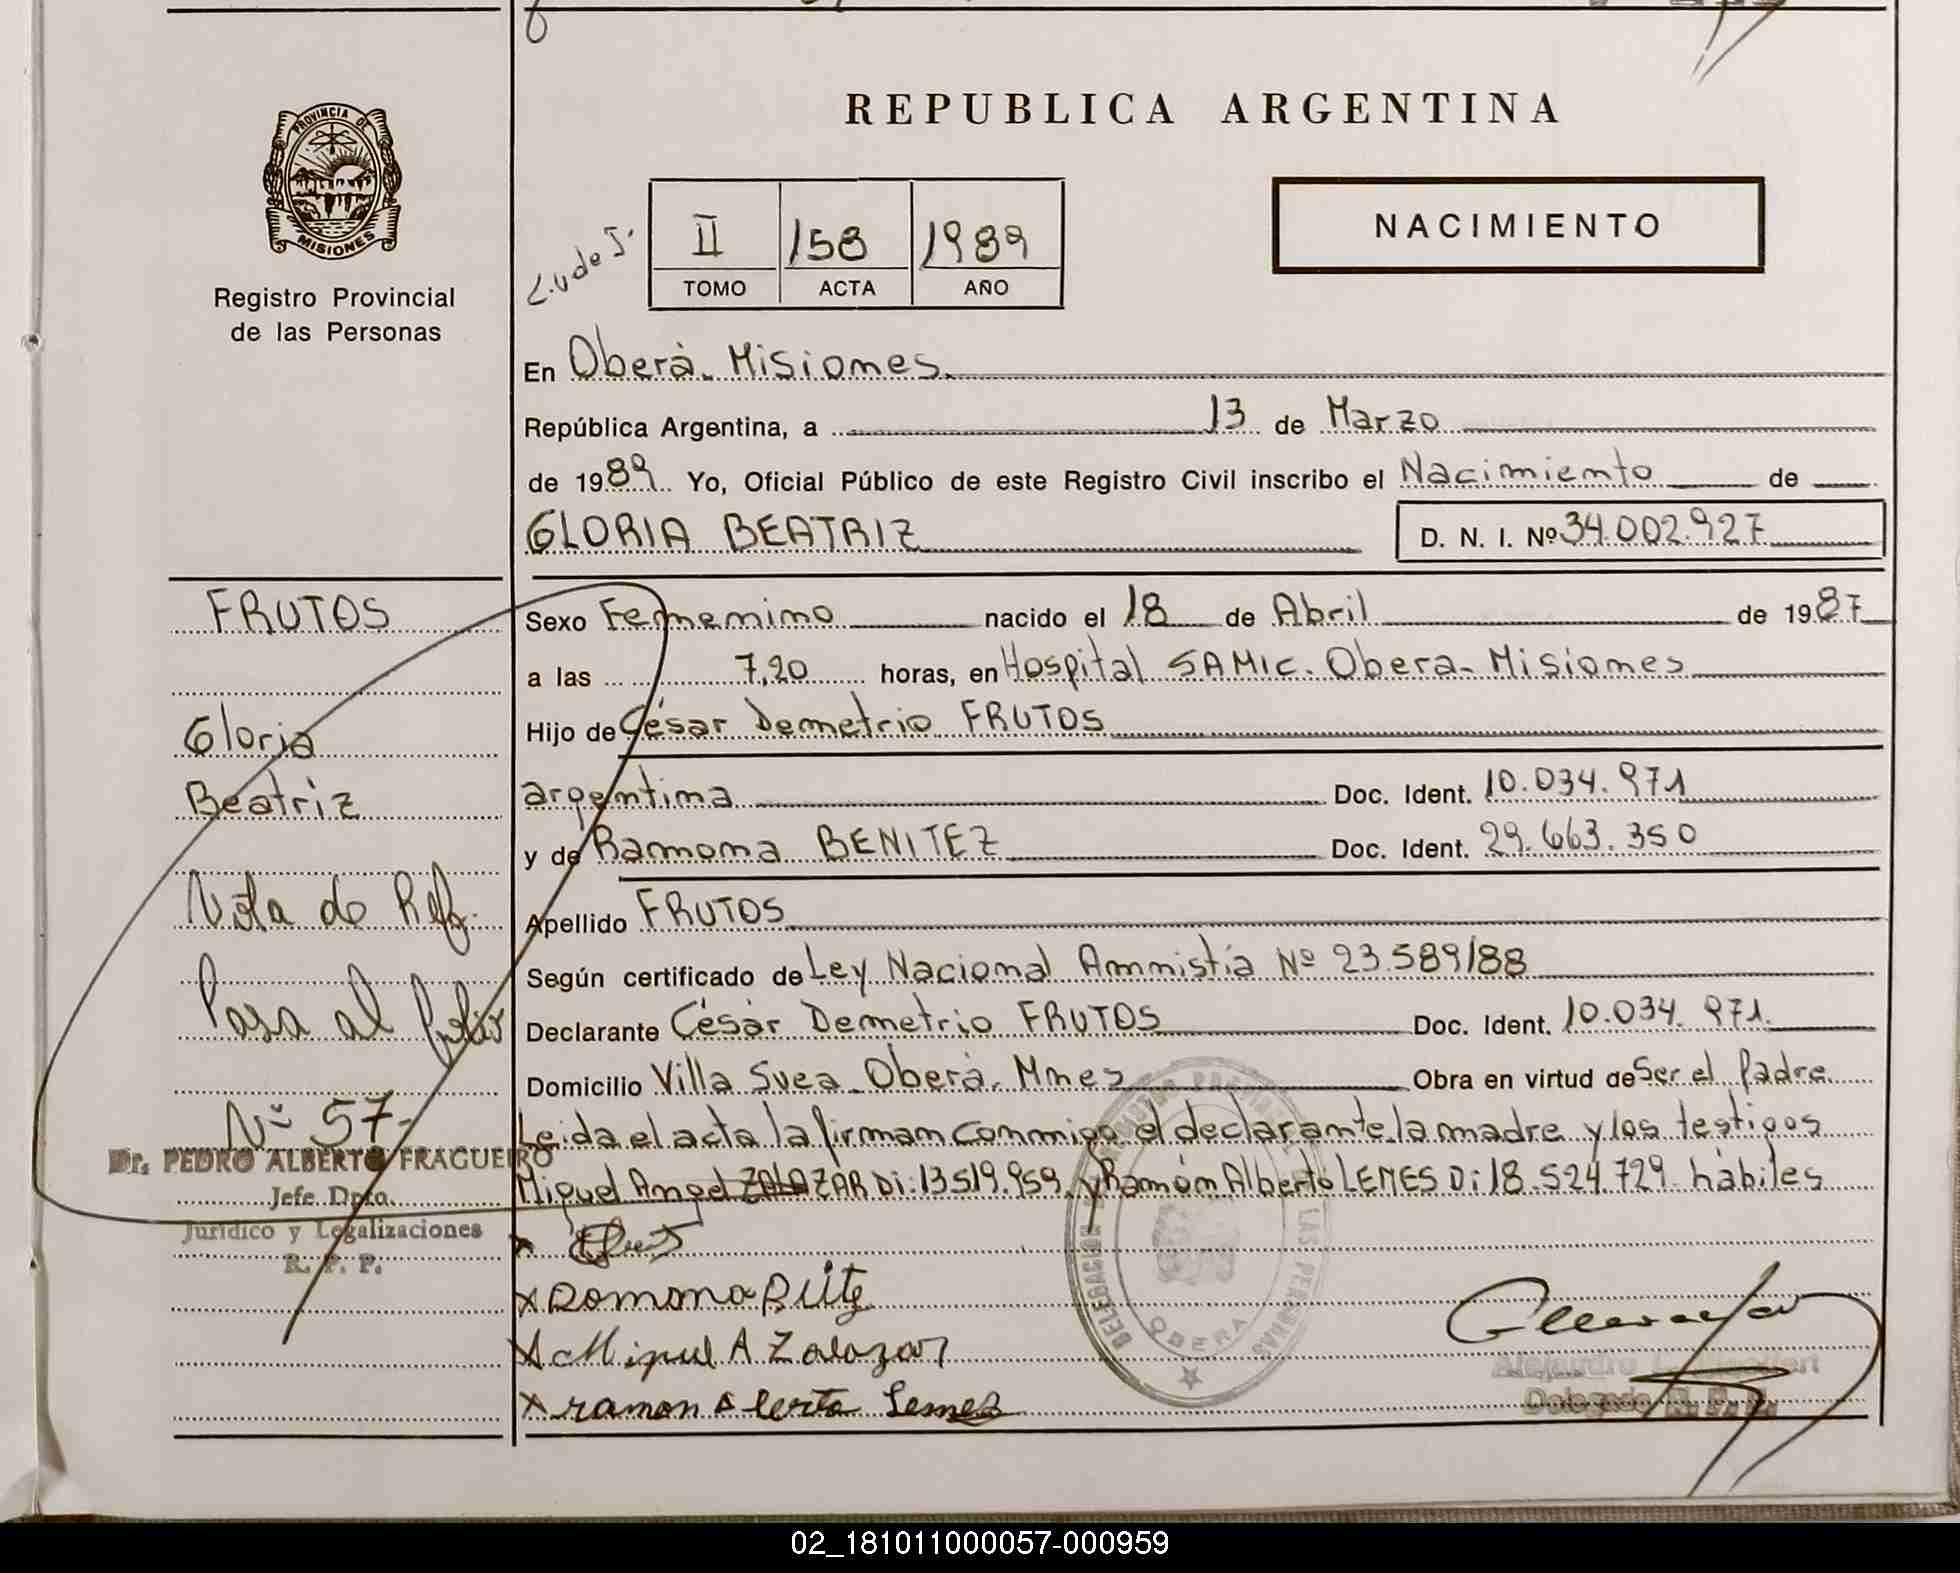 REPUBLICA ARGENTINA
PROVINCIA DE
MISIONES
Registro Provincial
de las Personas
II 158 1989
TOMO ACTA AÑO
NACIMIENTO
En Oberá. Misiones.
República Argentina, a 13 de Marzo
de 1989 Yo, Oficial Público de este Registro Civil inscribo el Nacimiento de
GLORIA BEATRIZ D. N. I. Nº 34.002.927
FRUTOS
Gloria
Beatriz
Nota de Ref.
Pasa al folio
Nº 57-
Dr. PEDRO ALBERTO FRAGUEIRO
Jefe Dpto.
Jurídico y Legalizaciones
R. P. P.
Sexo Femenino nacido el 18 de Abril de 1987
a las 7,20 horas, en Hospital SAMIC. Obera- Misiones
Hijo de César Demetrio FRUTOS
argentina Doc. Ident. 10.034.971
y de Ramona BENITEZ Doc. Ident. 29.663.350
Apellido FRUTOS
Según certificado de Ley Nacional Amnistía Nº 23.589/88
Declarante César Demetrio FRUTOS Doc. Ident. 10.034.971.
Domicilio Villa Svea. Oberá. Mnes Obra en virtud de Ser el Padre
Leida el acta la firman conmigo el declarante, la madre y los testigos
Miguel Angel ZALAZAR Di: 13.519.959. y Ramón Alberto LEMES Di 18.524.729. hábiles
x
x Romona
x Miguel A Zalazar
x ramon a lerto Lemes
DELEGACION LAS PERSONAS
OBERA
Alejandro
Delegado R. P. P.
02_181011000057-000959